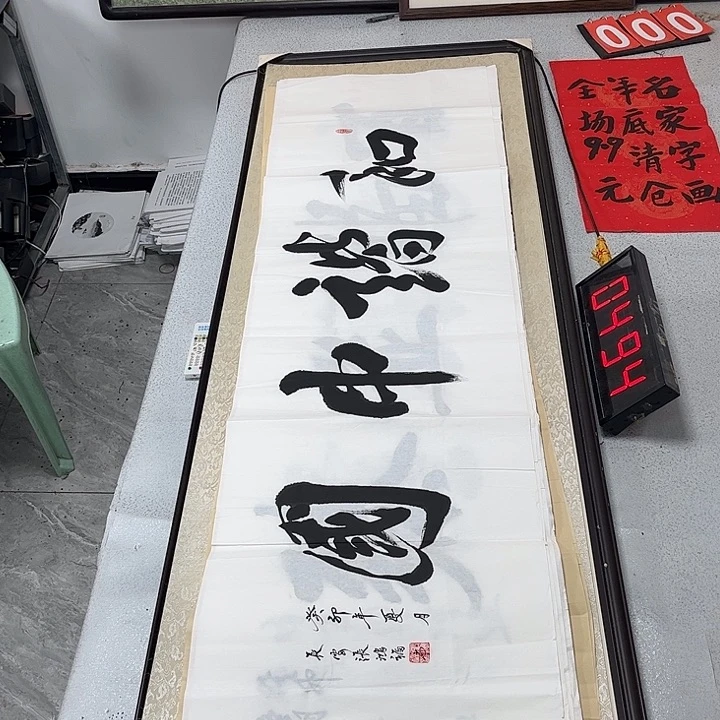 和谐中國
癸卯年夏月
000
全场99元
年底清仓
名家字画
0494